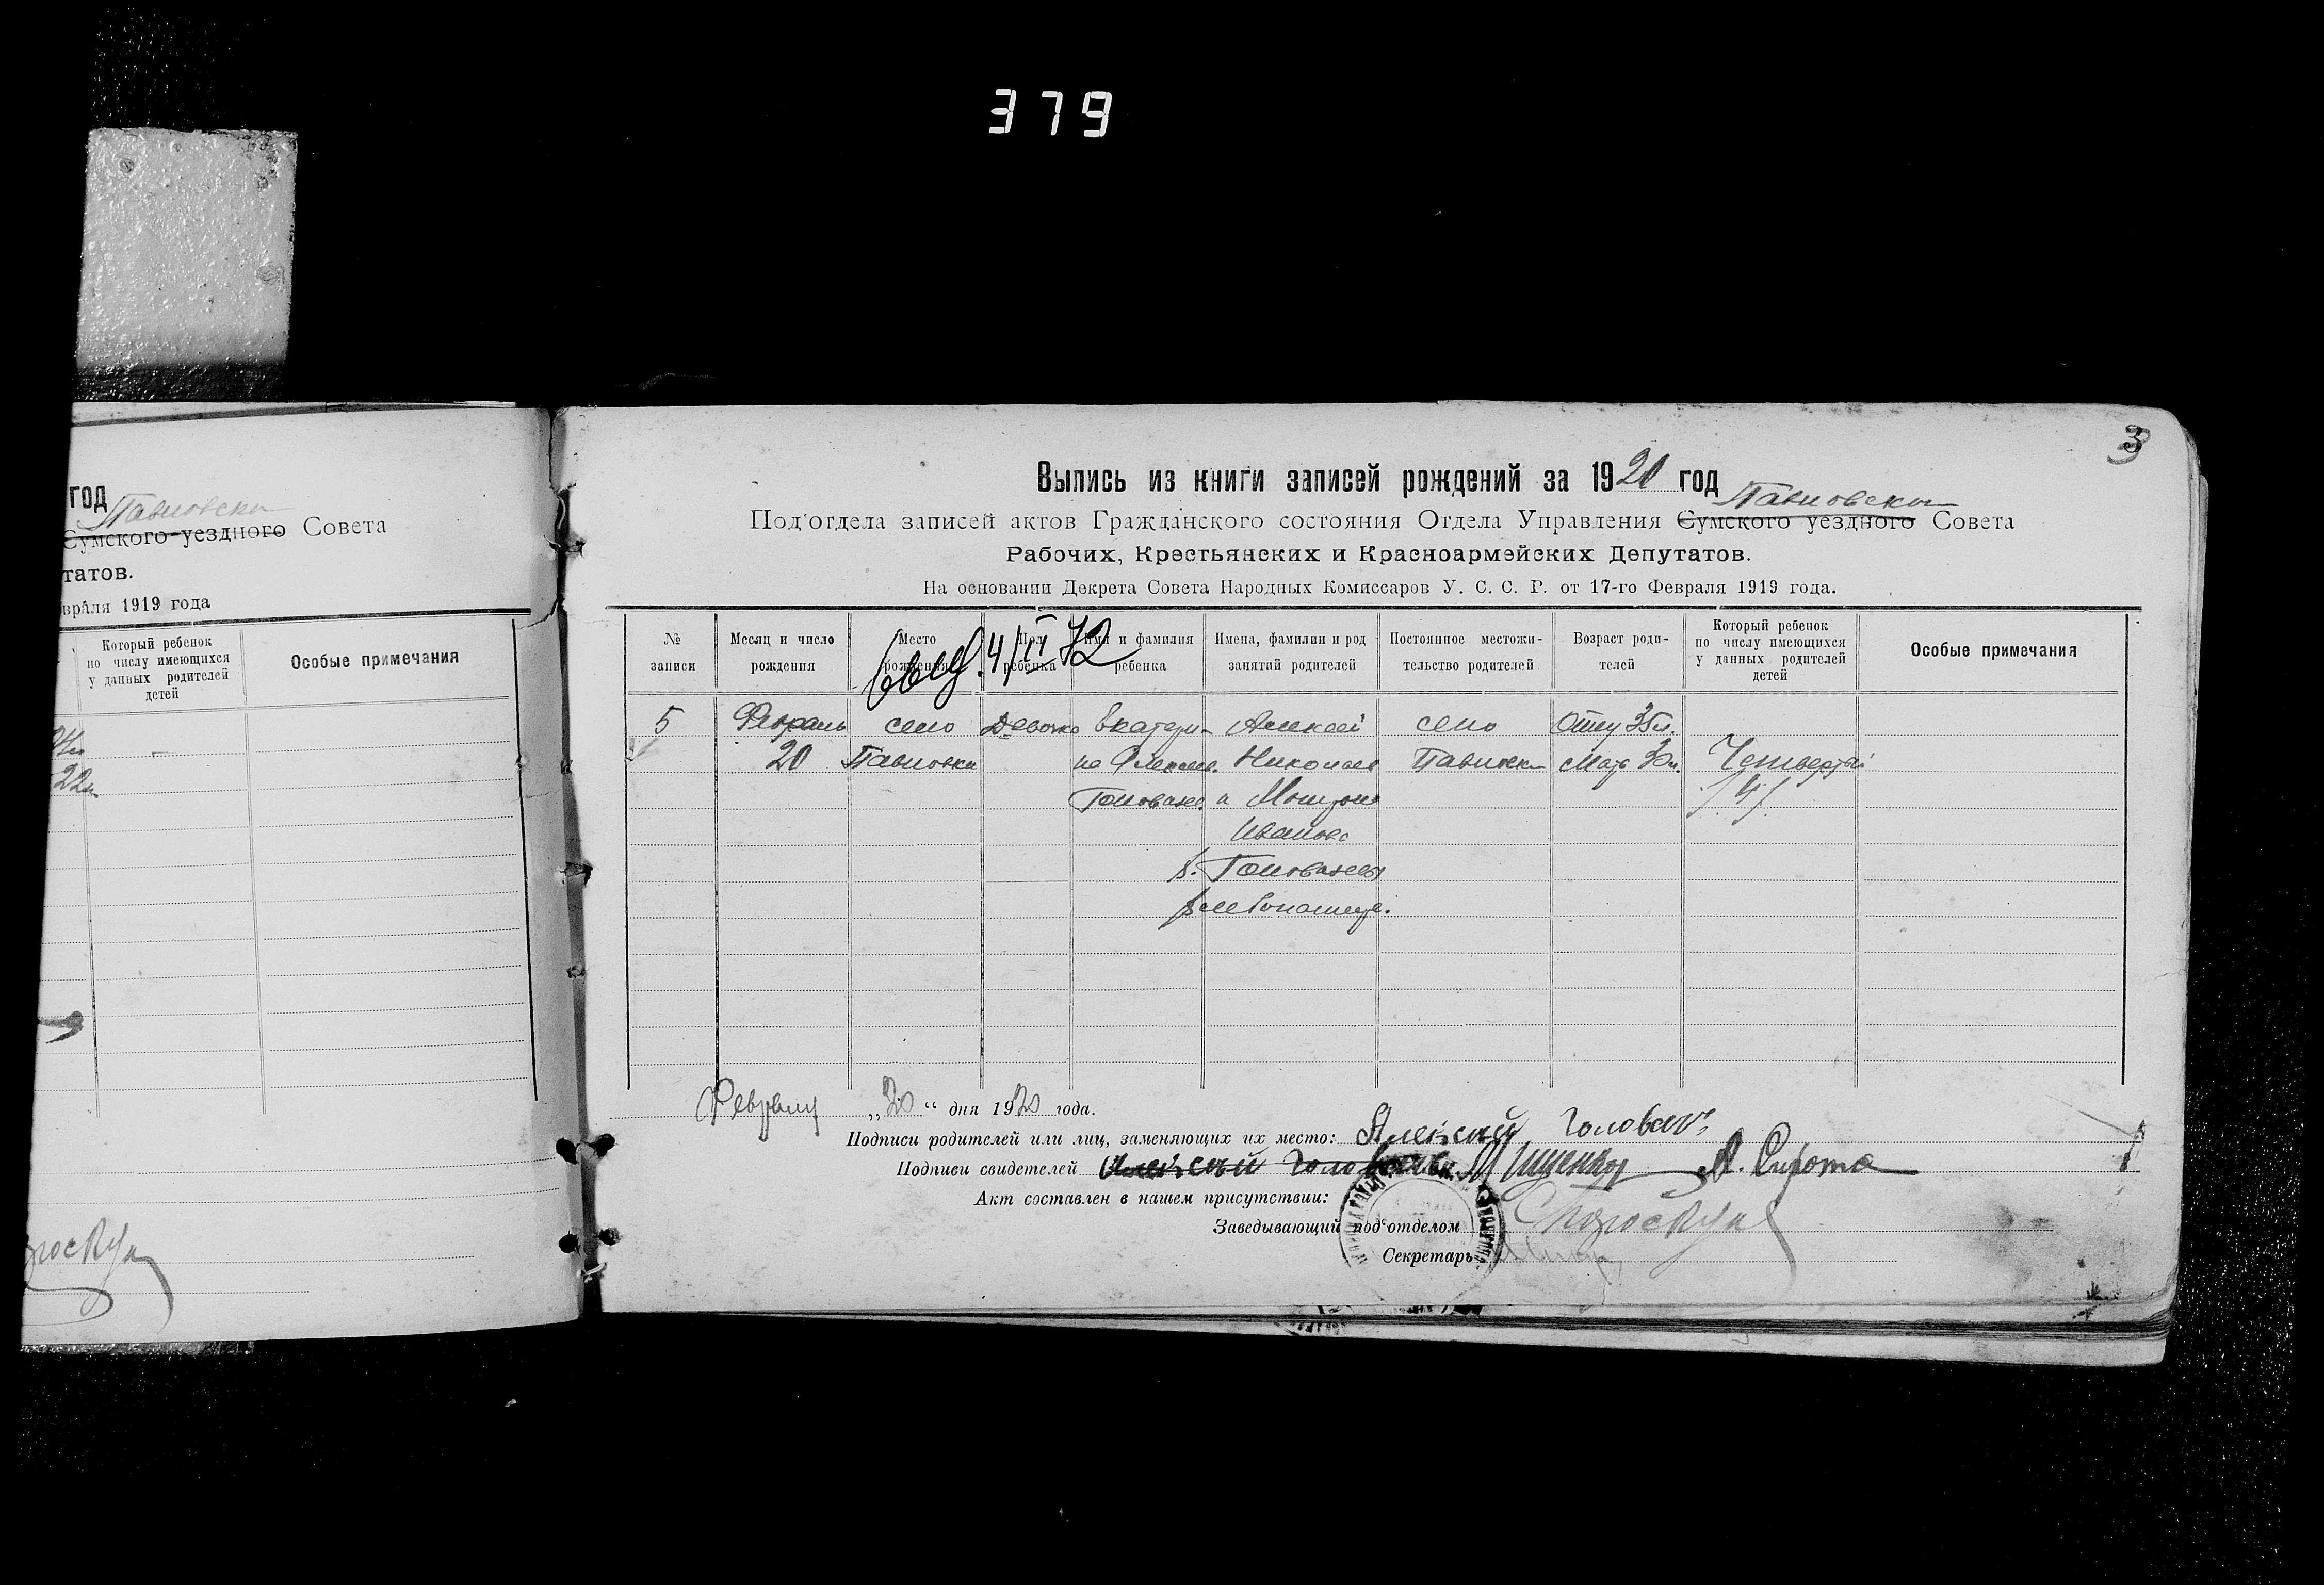 379
3
год
Павловски
Сумского уездного Совета
татов.
враля 1919 года
Который ребенок
по числу имеющихся
у данных родителей
детей
Особые примечания
22л.
Выпись из книги записей рождений за 1920 год
Павловски
Под'отдела записей актов Гражданского состояния Отдела Управления Сумского уездного Совета
Рабочих, Крестьянских и Красноармейских Депутатов.
На основании Декрета Совета Народных Комиссаров У. С. С. Р. от 17-го Февраля 1919 года.
№ записи
Месяц и число рождения
Место рождения
Пол ребенка
Имя и фамилия ребенка
Имена, фамилии и род занятий родителей
Постоянное местожи-тельство родителей
Возраст роди-телей
Который ребенок по числу имеющихся у данных родителей детей
Особые примечания
выд. 4/II 72
5 Февраль село Девочка Екатери- Алексей село Отцу 35л.
20 Павловка на Алексеев. Николаев Павловка Мать 30л. Четвертый
Головач. и Мотрона /4/.
Иванова
Головачевы
Февраля „20“ дня 1920 года.
Подписи родителей или лиц, заменяющих их место: Алексей Головач
Подписи свидетелей Алексей Головач Мищенко А. Сирота
Акт составлен в нашем присутствии:
Заведывающий под'отделом
Секретарь